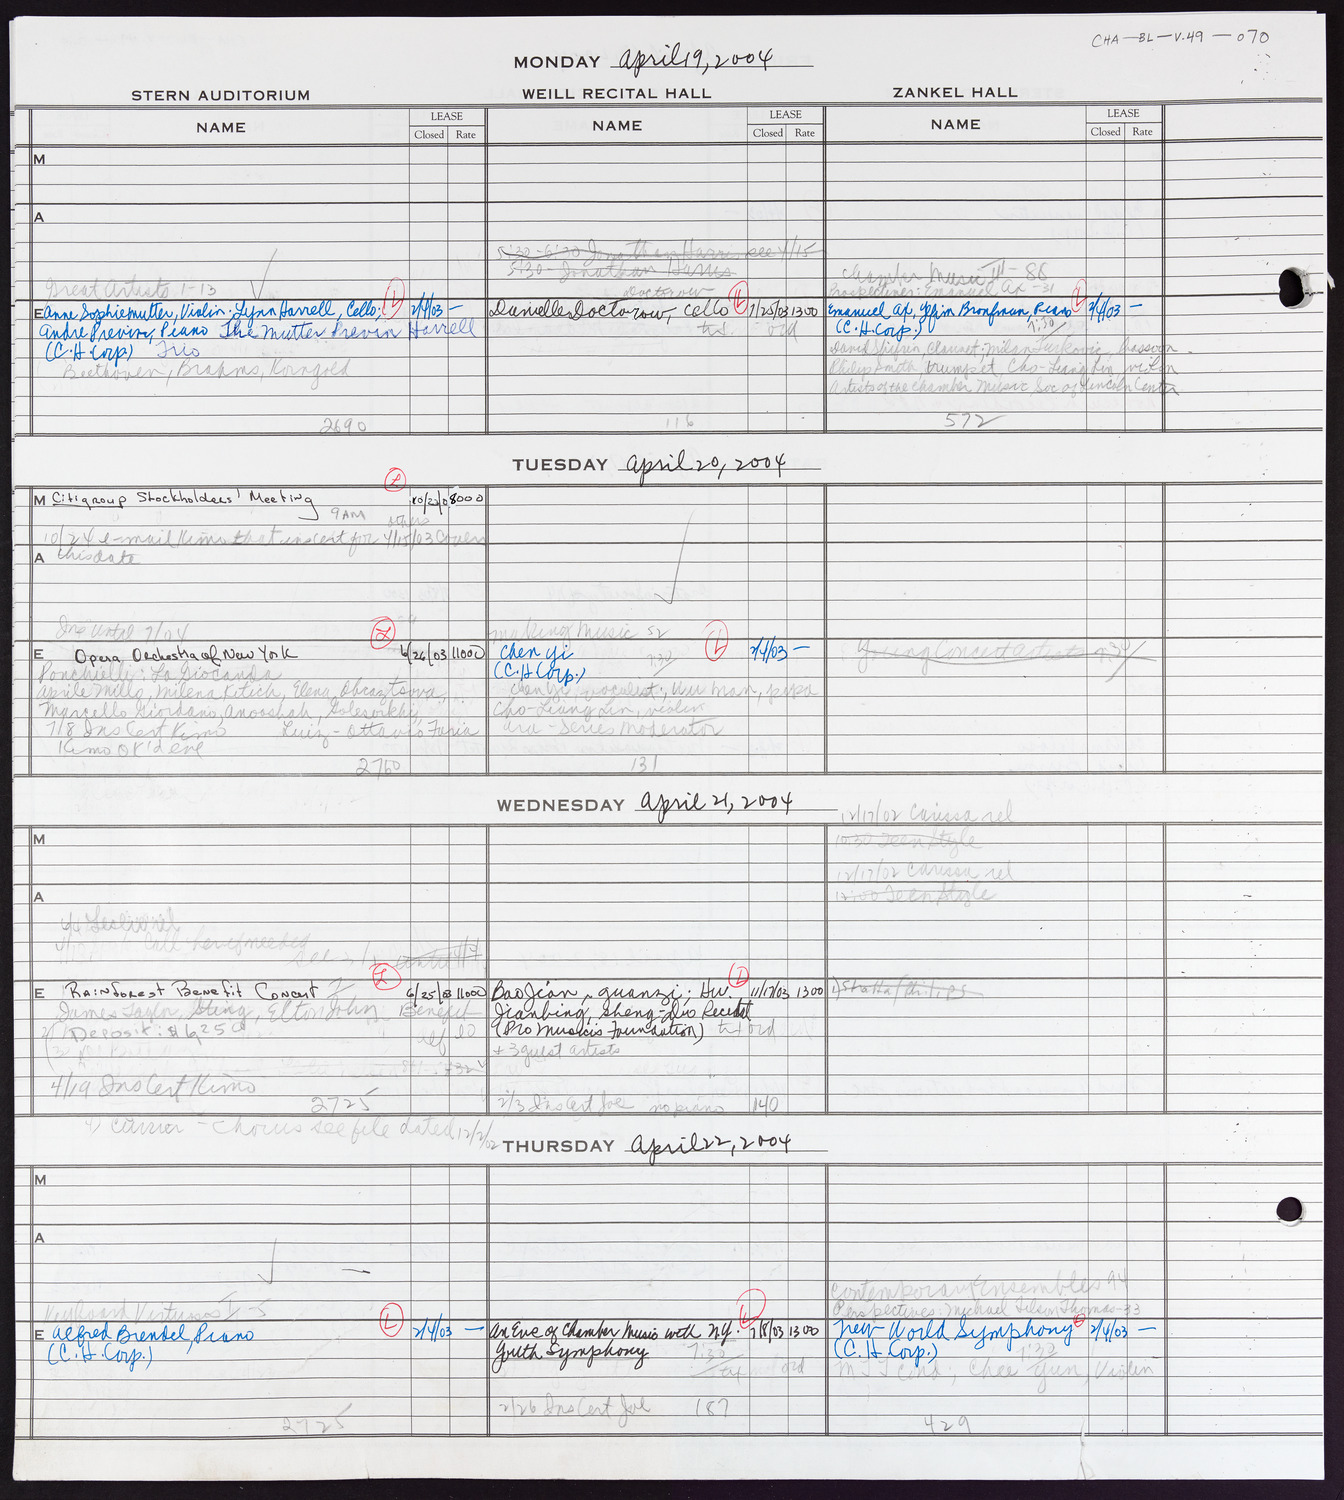 CHA-BL-V.49-070
MONDAY April 19, 2004
STERN AUDITORIUM
WEILL RECITAL HALL
ZANKEL HALL
NAME
LEASE
Closed Rate
NAME
LEASE
Closed Rate
NAME
LEASE
Closed Rate
M
A
Great Artists 1-13
E Anne Sophie Mutter, Violin; Lynn Harrell, Cello; L 2/4/03 —
Andre Previn, Piano The Mutter Previn Harrell
(C.H. Corp.) Trio
Beethoven, Brahms, Korngold
2690
5:30-6:30 Jonathan Harris see 4/15
5:30- Jonathan Harris
Doctorow
Danielle Doctorow, Cello L 7/25/03 1300
116
Chamber Music III - 86
Perspectives: Emanuel Ax - 31
Emanuel Ax, Yefim Bronfman, Piano L 2/4/03 —
(C.H. Corp.) 7:30
David Shifrin, Clarinet, Milan Turkovic, bassoon
Philip Smith, trumpet, Cho-Liang Lin, violin
Artists of the Chamber Music Soc of Lincoln Center
572
TUESDAY April 20, 2004
L
M Citigroup Stockholders' Meeting 8000
9AM
10/24 e-mail Kimo that ins cert for 4/15/03 covers
A this date
Ins until 7/04
L
E Opera Orchestra of New York 6/26/03 11000
Ponchielli: La Gioconda
Aprile Millo, Milena Kitich, Elena Obraztsova,
Marcello Giordano, Anooshah Golesorkhi,
7/8 Ins Cert Kimo Luiz-Ottavio Faria
Kimo OK'd eve
2760
Making Music 52
Chen Yi L 2/4/03 —
(C.H. Corp.) 7:30
Chen Yi, vocalist, Wu Man, pipa
Cho-Liang Lin, violin
Ara - Series Moderator
131
Young Concert Artists 7:30
WEDNESDAY April 21, 2004
12/17/02 Carissa rel
M
10:30 Teen Style
12/17/02 Carissa rel
A
12:00 Teen Style
6/4 Leslie rel
Call here if needed
L
E Rainforest Benefit Concert 6/25/03 11000
James Taylor, Sting, Elton John Benefit
Deposit: $6,250
4/19 Ins Cert Kimo
2725
L
Bao Jian, guanzi; Hu 11/17/03 1300
Jianbing, Sheng-Duo Recital
(Pro Musicis Foundation)
+ 3 guest artists
2/3 Ins Cert Joe no piano 140
4) Carrier - Chorus see file dated 12/2/02
THURSDAY April 22, 2004
M
A
Keyboard Virtuosos I-5
E Alfred Brendel, Piano L 2/4/03 —
(C.H. Corp.)
2725
An Eve of Chamber Music with N.Y. L 7/8/03 1300
Youth Symphony 7:30
2/26 Ins Cert Joe 187
Contemporary Ensembles 94
Perspectives: Michael Tilson Thomas-33
New World Symphony L 2/4/03 —
(C.H. Corp.) 7:30
MTT cond; Chee Yun, Violin
429